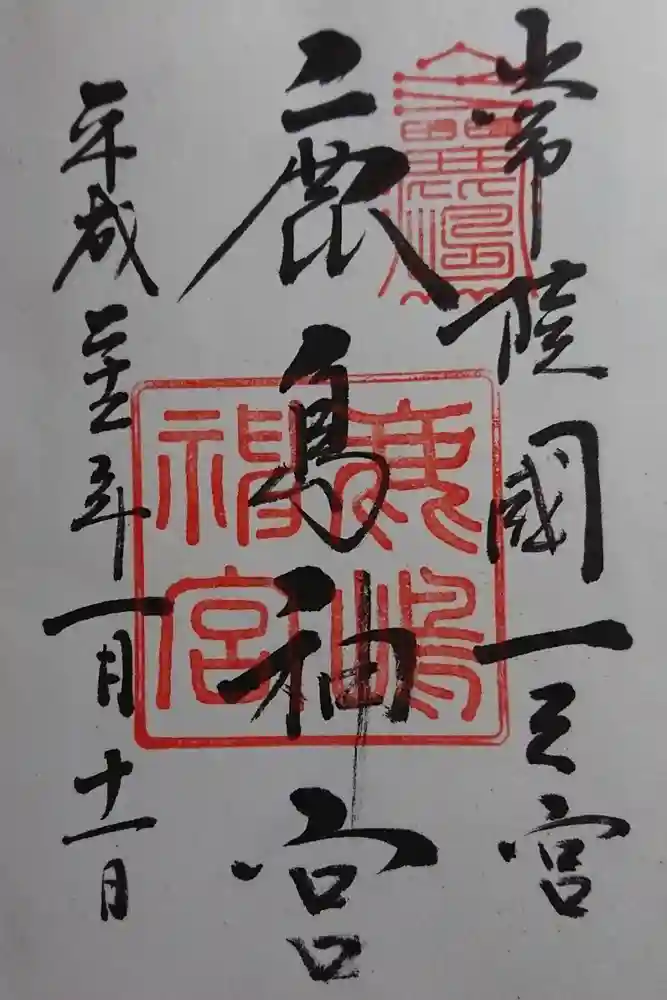 常陸國一之宮
鹿島神宮
平成年一月十一日
鹿嶋
神宮